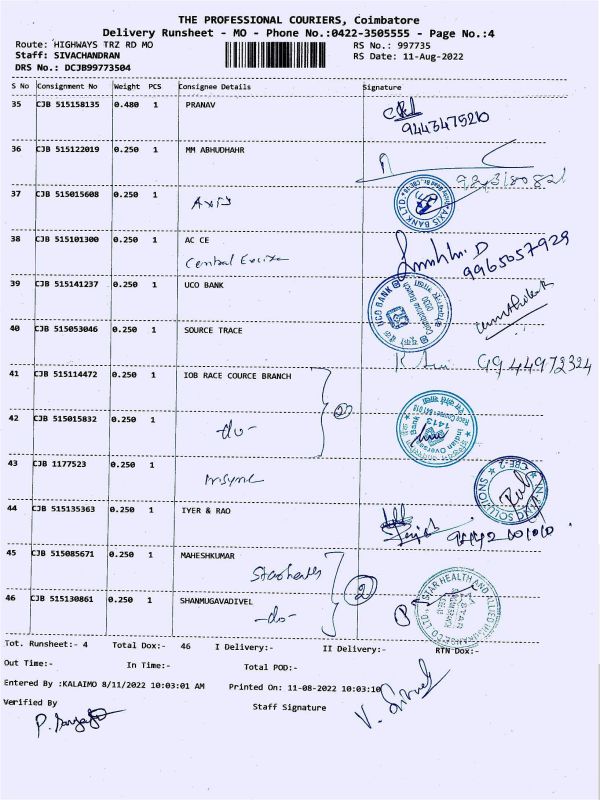 THE PROFESSIONAL COURIERS, Coimbatore
Delivery Runsheet - MO - Phone No.:0422-3505555 - Page No.:4
Route: HIGHWAYS TRZ RD MO RS No.: 997735
Staff: SIVACHANDRAN RS Date: 11-Aug-2022
DRS No.: DCJB99773504
S No Consignment No Weight PCS Consignee Details Signature
35 CJB 515158135 0.480 1 PRANAV
9443475210
36 CJB 515122019 0.250 1 MM ABHUDHAHR
37 CJB 515015608 0.250 1 Axis AXIS BANK LTD.
38 CJB 515101300 0.250 1 AC CE
Central Excise 9965057929
39 CJB 515141237 0.250 1 UCO BANK UCO BANK Coimbatore Branch
40 CJB 515053046 0.250 1 SOURCE TRACE 9944972324
41 CJB 515114472 0.250 1 IOB RACE COURCE BRANCH 2
42 CJB 515015832 0.250 1 -do- Indian Overseas Bank 1413
43 CJB 1177523 0.250 1 Insync SOLUTIONS CBE-2
44 CJB 515135363 0.250 1 IYER & RAO
45 CJB 515085671 0.250 1 MAHESHKUMAR
2
46 CJB 515130861 0.250 1 SHANMUGAVADIVEL STAR HEALTH AND ALLIED INSURANCE CO LTD
-do-
Tot. Runsheet:- 4 Total Dox:- 46 I Delivery:- II Delivery:- RTN Dox:-
Out Time:- In Time:- Total POD:-
Entered By :KALAIMO 8/11/2022 10:03:01 AM Printed On: 11-08-2022 10:03:10
Verified By Staff Signature